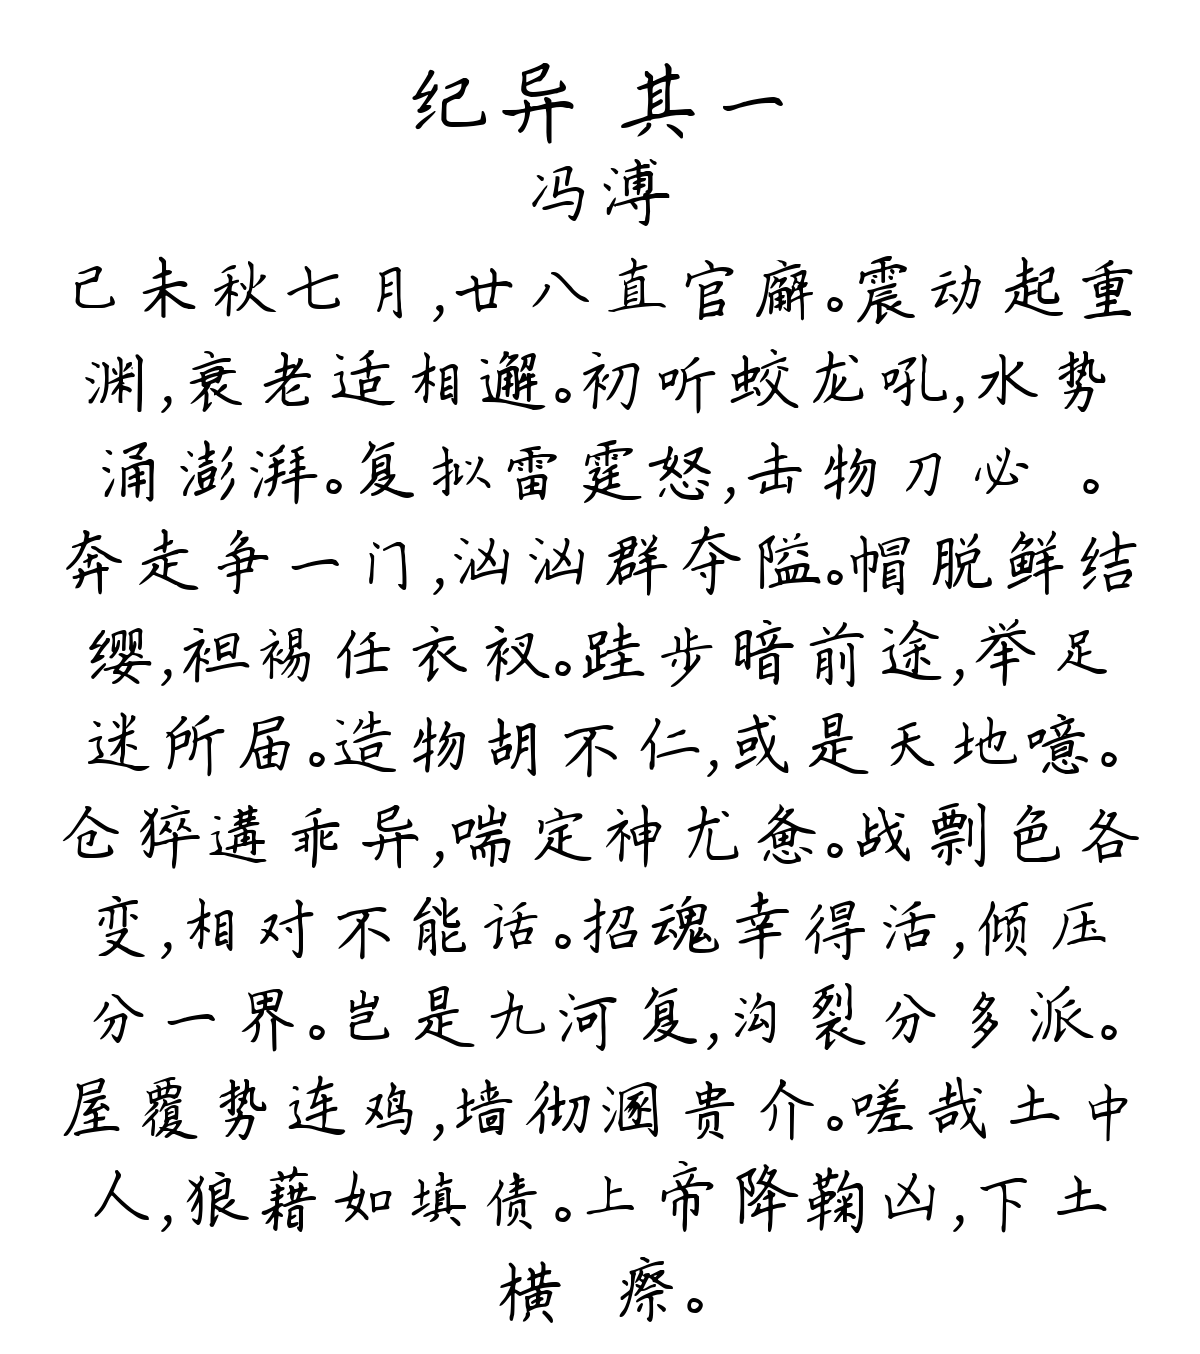 纪异 其一
冯溥
己未秋七月,廿八直官廨。震动起重
渊,衰老适相邂。初听蛟龙吼,水势
涌澎湃。复拟雷霆怒,击物刀必 。
奔走争一门,汹汹群夺隘。帽脱鲜结
缨,袒裼任衣衩。跬步暗前途,举足
迷所届。造物胡不仁,或是天地噫。
仓猝遘乖异,喘定神尤惫。战剽色各
变,相对不能话。招魂幸得活,倾压
分一界。岂是九河复,沟裂分多派。
屋覆势连鸡,墙彻溷贵介。嗟哉土中
人,狼藉如填债。上帝降鞠凶,下土
横 瘵。